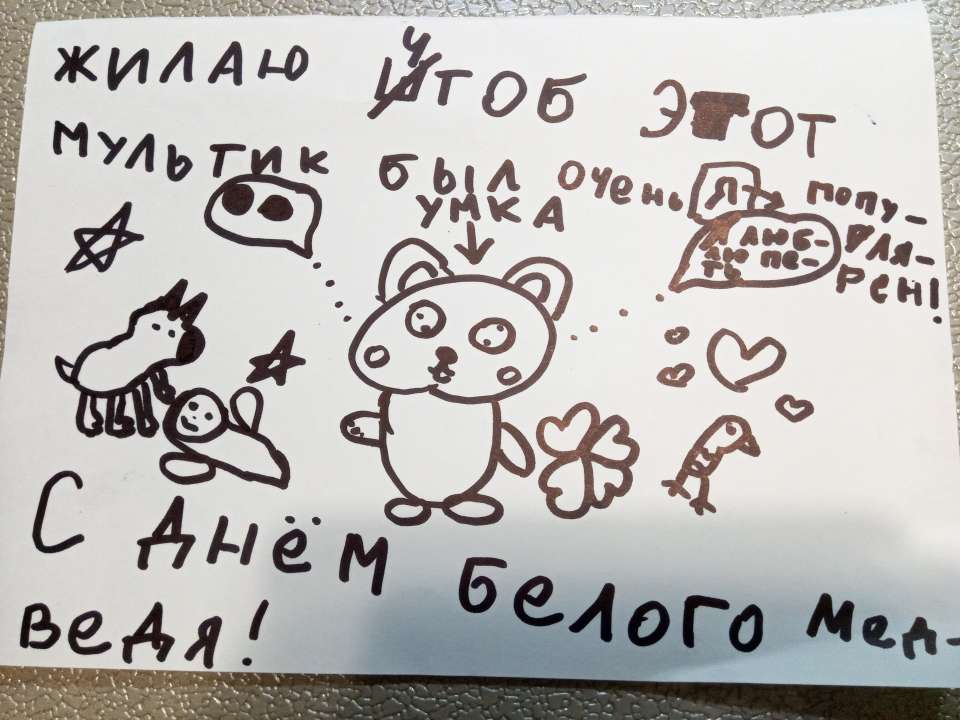 ЖИЛАЮ ЧТОБ ЭТОТ
МУЛЬТИК БЫЛ ОЧЕНЬ ПОПУ-
ЛЯ-
РЕН!
УМКА
Я
Я ЛЮБ-
ЛЮ ПЕ-
ТЬ
С ДНЁМ БЕЛОГО МЕД-
ВЕДЯ!